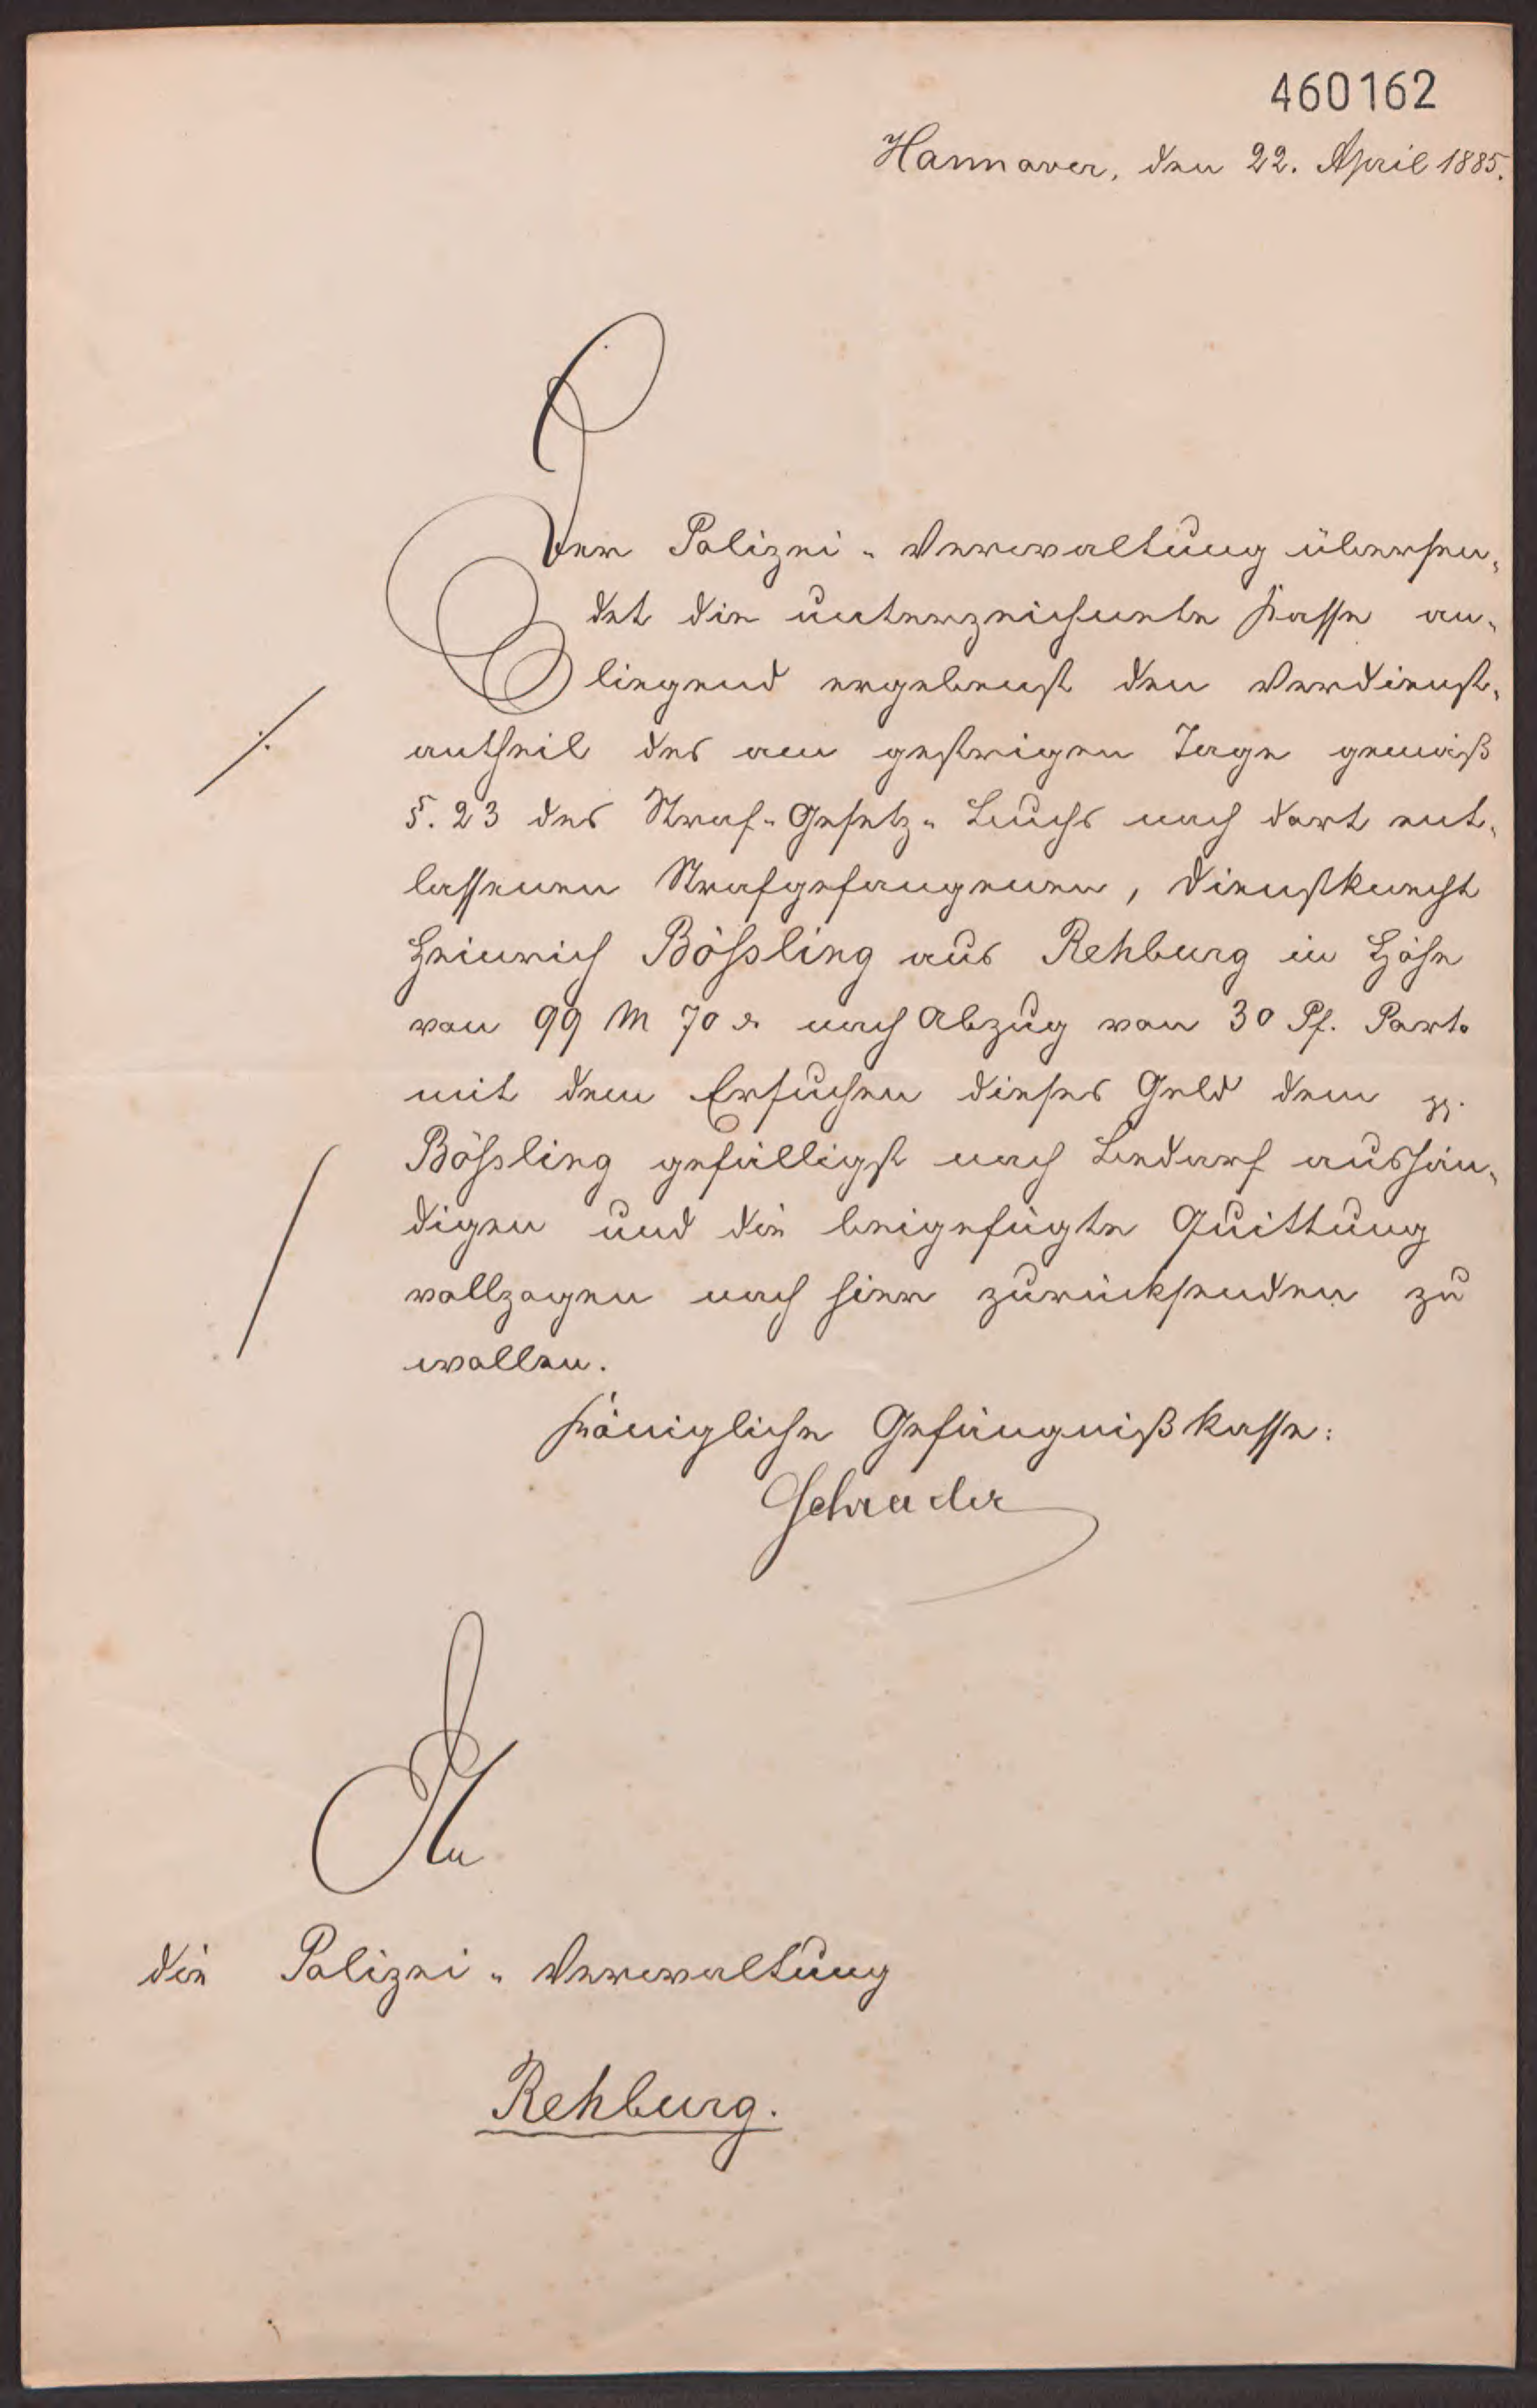 460162
Hannover, den 22. April 1885.
Der Polizei-Verwaltung übersen-
det die unterzeichnete Kasse an-
liegend ergebenst den Verdienst-
antheil des am gestrigen Tage gemäß
§. 23 des Straf-Gesetz-Buchs nach dort ent-
lassenen Strafgefangenen, Dienstknecht
Heinrich Bößling aus Rehburg in Höhe
von 99 M 70 ₰ nach Abzug von 30 Pf. Porto
mit dem Ersuchen dieses Geld dem pp.
Bößling gefälligst nach Bedarf aushän-
digen und die beigefügte Quittung
vollzogen nach hier zurücksenden zu
wollen.
Königliche Gefängnißkasse:
Schrader
An
die Polizei-Verwaltung
Rehburg.